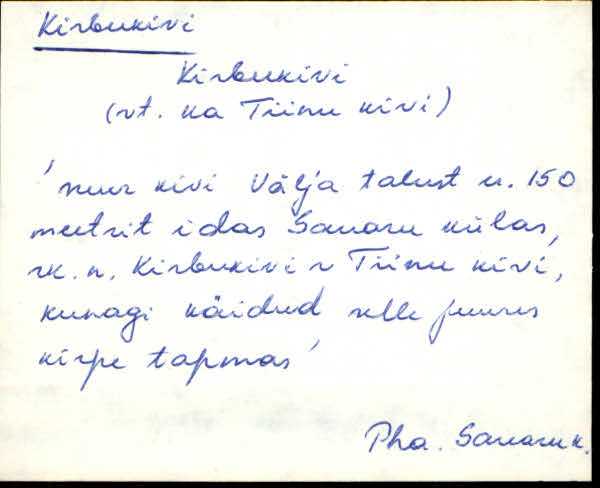 Kirbukivi
Kirbukivi
(vt. ka Tiinu kivi)
'suur kivi Välja talust u. 150
meetrit idas Sauaru külas,
rk. n. Kirbukivi v Tiinu kivi,
kunagi käidud selle juures
kirpe tapmas'
Pha. Sauaru k.